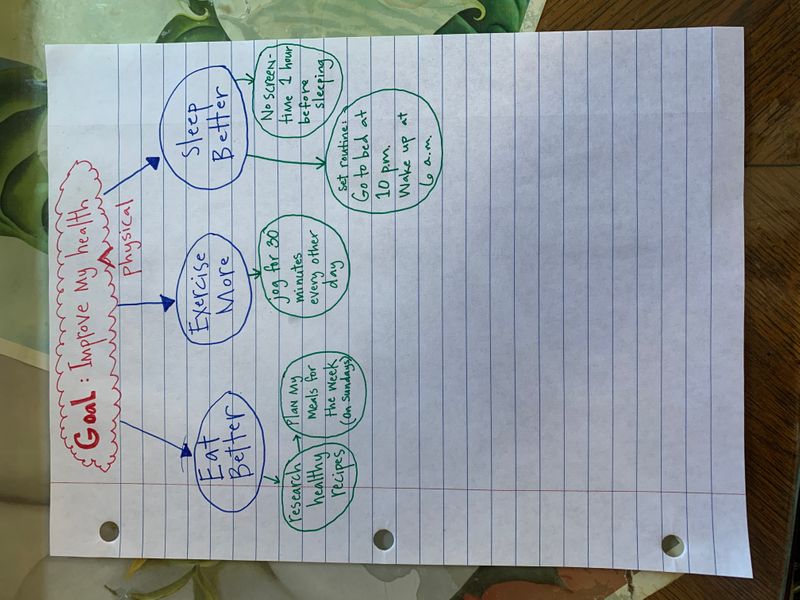 Goal: Improve My health
physical
Eat
Better
Exercise
More
Sleep
Better
research
healthy
recipes
Plan My
Meals for
the Week
(on Sundays)
jog for 30
minutes
every other
day
Set routine:
Go to bed at
10 p.m.
Wake up at
6 a.m.
No screen-
time 1 hour
before
sleeping